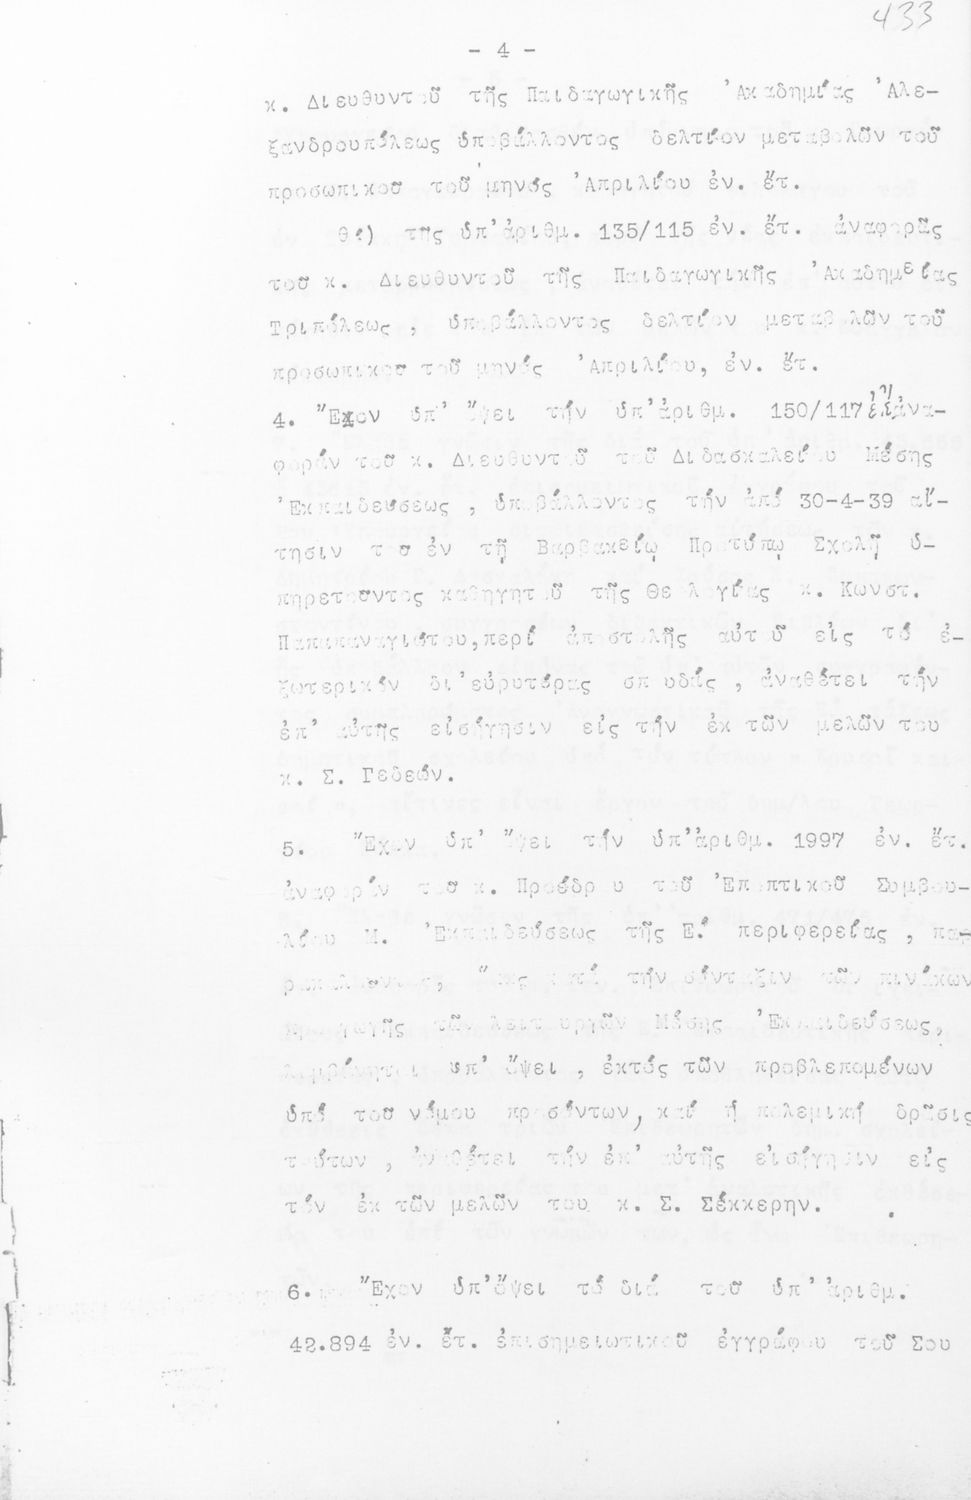 433
- 4 -
κ. Διευθυντοῦ τῆς Παιδαγωγικῆς Ἀκαδημίας Ἀλε-
ξανδρουπόλεως ὑποβάλλοντος δελτίον μεταβολῶν τοῦ
προσωπικοῦ τοῦ μηνός Ἀπριλίου ἐν. ἔτ.
θ') τῆς ὑπ' ἀριθμ. 135/115 ἐν. ἔτ. ἀναφορᾶς
τοῦ κ. Διευθυντοῦ τῆς Παιδαγωγικῆς Ἀκαδημείας
Τριπόλεως, ὑποβάλλοντος δελτίον μεταβολῶν τοῦ
προσωπικοῦ τοῦ μηνός Ἀπριλίου, ἐν. ἔτ.
4. Ἔχον ὑπ' ὄψει τήν ὑπ' ἀριθμ. 150/117 ἀνα-
φοράν τοῦ κ. Διευθυντοῦ τοῦ Διδασκαλείου Μέσης
Ἐκπαιδεύσεως, ὑποβάλλοντος τήν ἀπό 30-4-39 αἴ-
τησιν τοῦ ἐν τῇ Βαρβακείῳ Προτύπῳ Σχολῇ ὑ-
πηρετοῦντος καθηγητοῦ τῆς Θεολογίας κ. Κωνστ.
Παπαπαναγιώτου, περί ἀποστολῆς αὐτοῦ εἰς τό ἐ-
ξωτερικόν δι' εὐρυτέρας σπουδάς, ἀναθέτει τήν
ἐπ' αὐτῆς εἰσήγησιν εἰς τήν ἐκ τῶν μελῶν του
κ. Σ. Γεδεών.
5. Ἔχον ὑπ' ὄψει τήν ὑπ' ἀριθμ. 1997 ἐν. ἔτ.
ἀναφοράν τοῦ κ. Προέδρου τοῦ Ἐποπτικοῦ Συμβου-
λίου Μ. Ἐκπαιδεύσεως τῆς Ε! περιφερείας, πα-
ρακαλοῦντος, ὅπως κατά τήν σύνταξιν τῶν πινάκων
προαγωγῆς τῶν λειτουργῶν Μέσης Ἐκπαιδεύσεως,
λαμβάνηται ὑπ' ὄψει, ἐκτός τῶν προβλεπομένων
ὑπό τοῦ νόμου προσόντων, καί ἡ πολεμική δρᾶσις
τούτων, ἀναθέτει τήν ἐπ' αὐτῆς εἰσήγησιν εἰς
τόν ἐκ τῶν μελῶν του κ. Σ. Σέκκερην.
6. Ἔχον ὑπ' ὄψει τό διά τοῦ ὑπ' ἀριθμ.
42.894 ἐν. ἔτ. ἐπισημειωτικοῦ ἐγγράφου τοῦ Σου